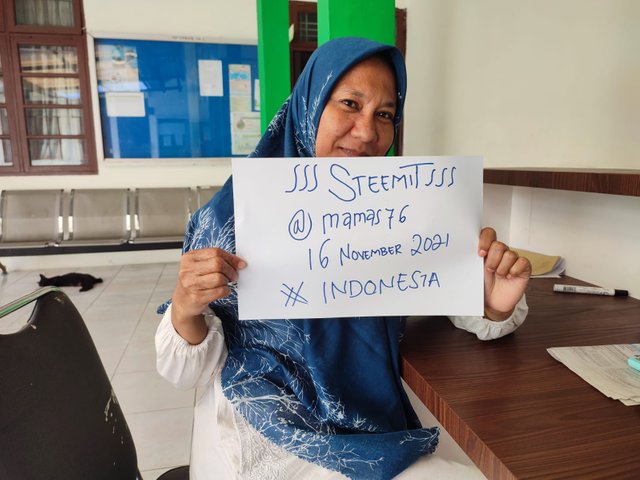 SSS STEEMITSSS
@ mamas76
16 November 2021
# INDONESIA